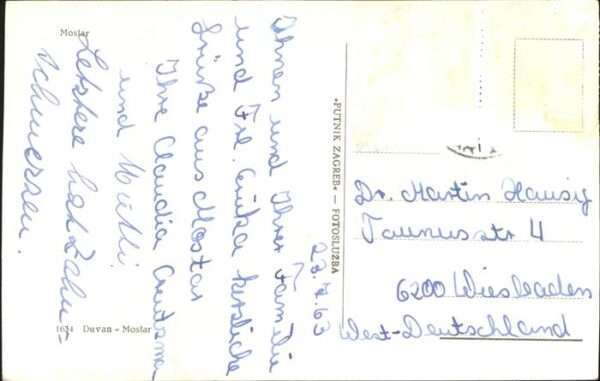 Mostar
Ihnen und Ihrer Familie
und Frl. Erika herzliche
Grüße aus Mostar
Ihre Claudia
und Mutti.
Letztere hat Zahn-
schmerzen.
23.7.63
1634 Duvan - Mostar
»PUTNIK ZAGREB« — FOTOSLUŽBA
Dr. Martin Hausig
Taunusstr 4
6200 Wiesbaden
West-Deutschland